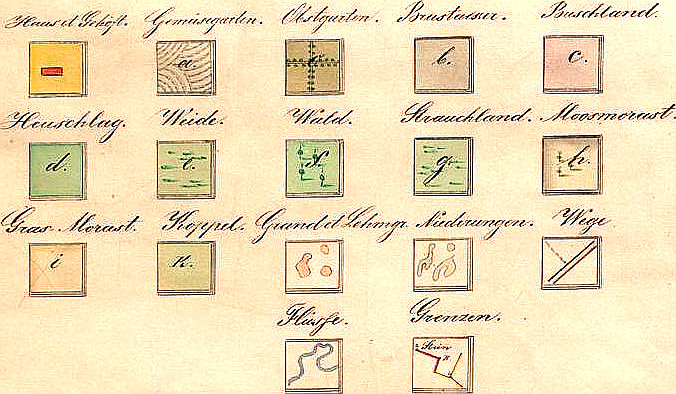 Haus et Gehöft. Gemüsegarten. Obstgarten. Brustaecker. Buschland.
a. b. c.
Heuschlag. Weide. Wald. Strauchland. Moosmorast.
d. e. f. g. h.
Gras Morast. Koppel. Grand et Lehmgr. Niederungen. Wege
i k.
Flüsse. Grenzen.